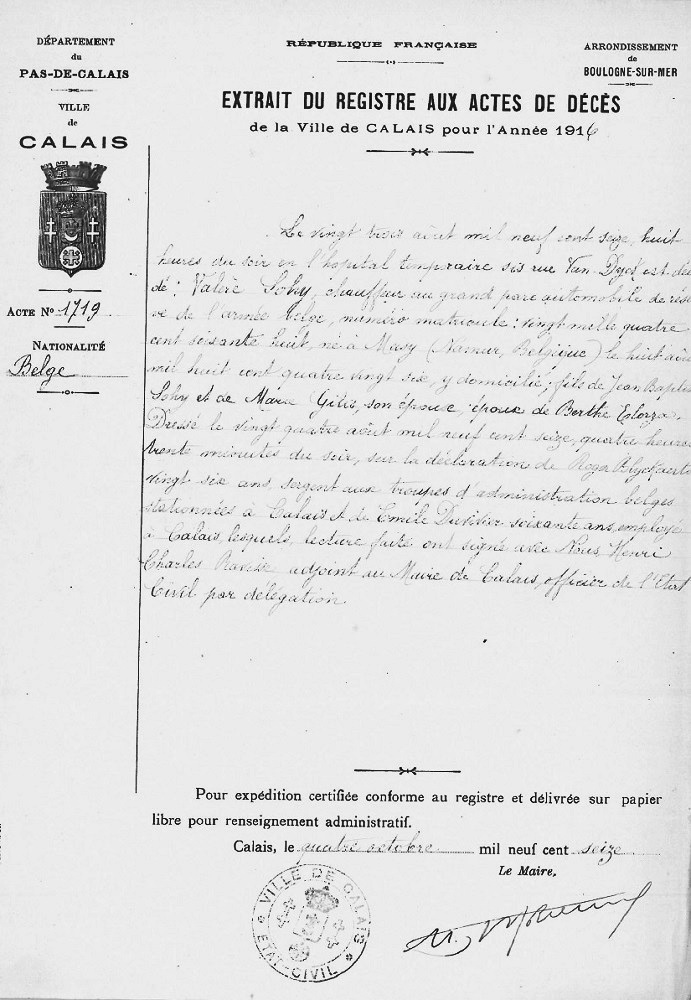 DÉPARTEMENT
du
PAS-DE-CALAIS
VILLE
de
CALAIS
ACTE No 1719
NATIONALITÉ
Belge
RÉPUBLIQUE FRANÇAISE
ARRONDISSEMENT
de
BOULOGNE-SUR-MER
EXTRAIT DU REGISTRE AUX ACTES DE DÉCÈS
de la Ville de CALAIS pour l'Année 1916
Le vingt trois août mil neuf cent seize, huit
heures du soir en l'hôpital temporaire sis rue Van-Dyck est décé
dé : Valère Sohy, chauffeur au grand parc automobile de réser
ve de l'armée belge, numéro matricule : vingt mille quatre
cent soixante huit, né à Masy (Namur, Belgique) le huit août
mil huit cent quatre vingt six, y domicilié ; fils de Jean Baptiste
Sohy et de Maria Gilis, son épouse, époux de Berthe
Dressé le vingt quatre août mil neuf cent seize, quatre heures
trente minutes du soir, sur la déclaration de Roger
vingt six ans, sergent aux troupes d'administration belges
stationnées à Calais et de Emile Duvivier soixante ans, employé
à Calais, lesquels, lecture faite ont signé avec Nous Henri
Charles Ravisse adjoint au Maire de Calais, officier de l'Etat
Civil par délégation.
Pour expédition certifiée conforme au registre et délivrée sur papier
libre pour renseignement administratif.
Calais, le quatre octobre mil neuf cent seize
Le Maire,
VILLE DE CALAIS
ETAT-CIVIL